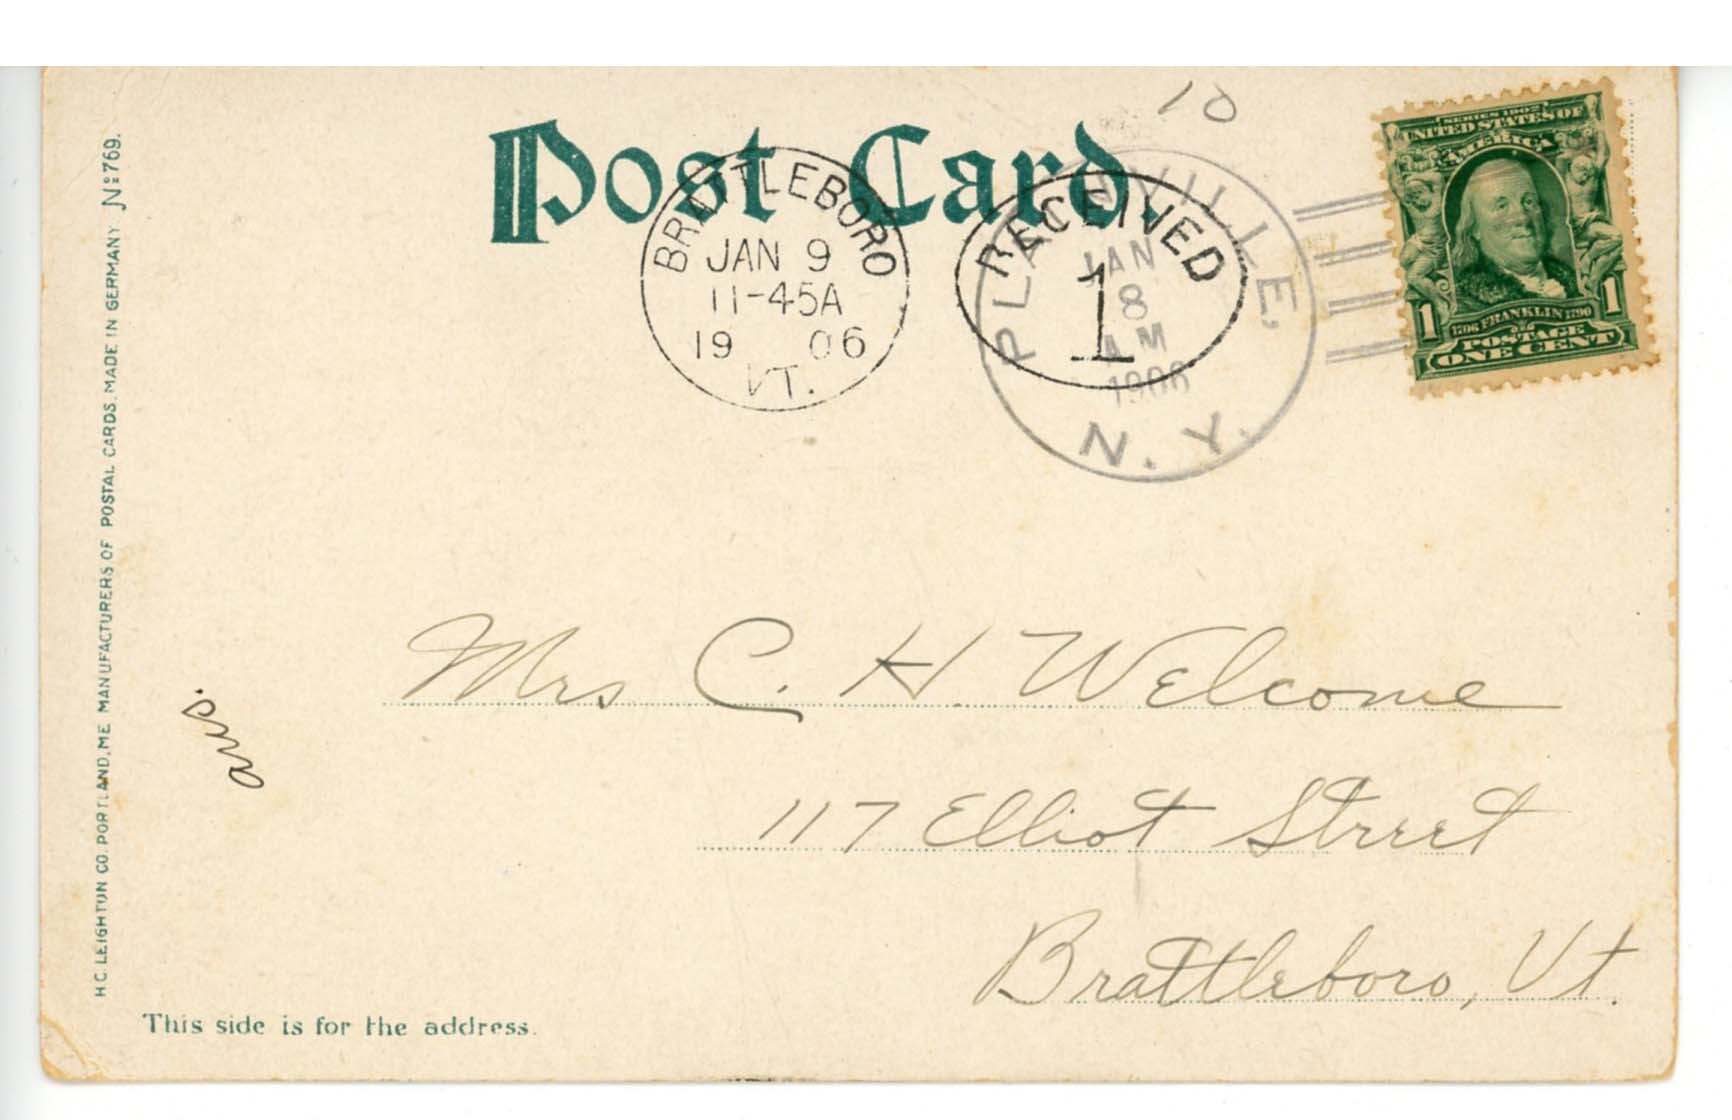 10
Post Card.
BRATTLEBORO
JAN 9
11-45A
19 06
VT.
RECEIVED
1
JAN
8
AM
1906
N. Y.
SERIES 1902
UNITED STATES OF
AMERICA
1706 FRANKLIN 1790
1 1
POSTAGE
ONE CENT
H.C. LEIGHTON CO. PORTLAND, ME. MANUFACTURERS OF POSTAL CARDS. MADE IN GERMANY No 769.
Mrs C. H. Welcome
117 Elliot Street
Brattleboro, Vt.
ans.
This side is for the address.